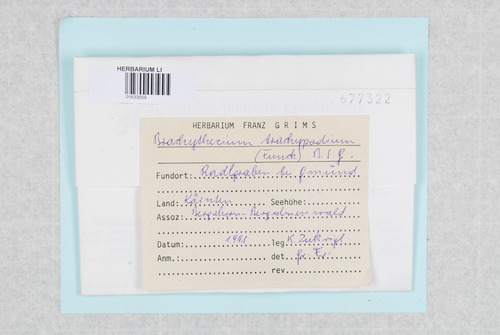 HERBARIUM LI
677322
HERBARIUM FRANZ GRIMS
Brachythecium trachypodium
(Funck) B.S.G.
Fundort: Radlgraben bei Gmünd
Land: Kärnten Seehöhe:
Assoz: Bergahorn-Bergulmenwald
Datum: 1991 leg. K. Zukrigl
Anm.: det. Gr. Fr.
rev.